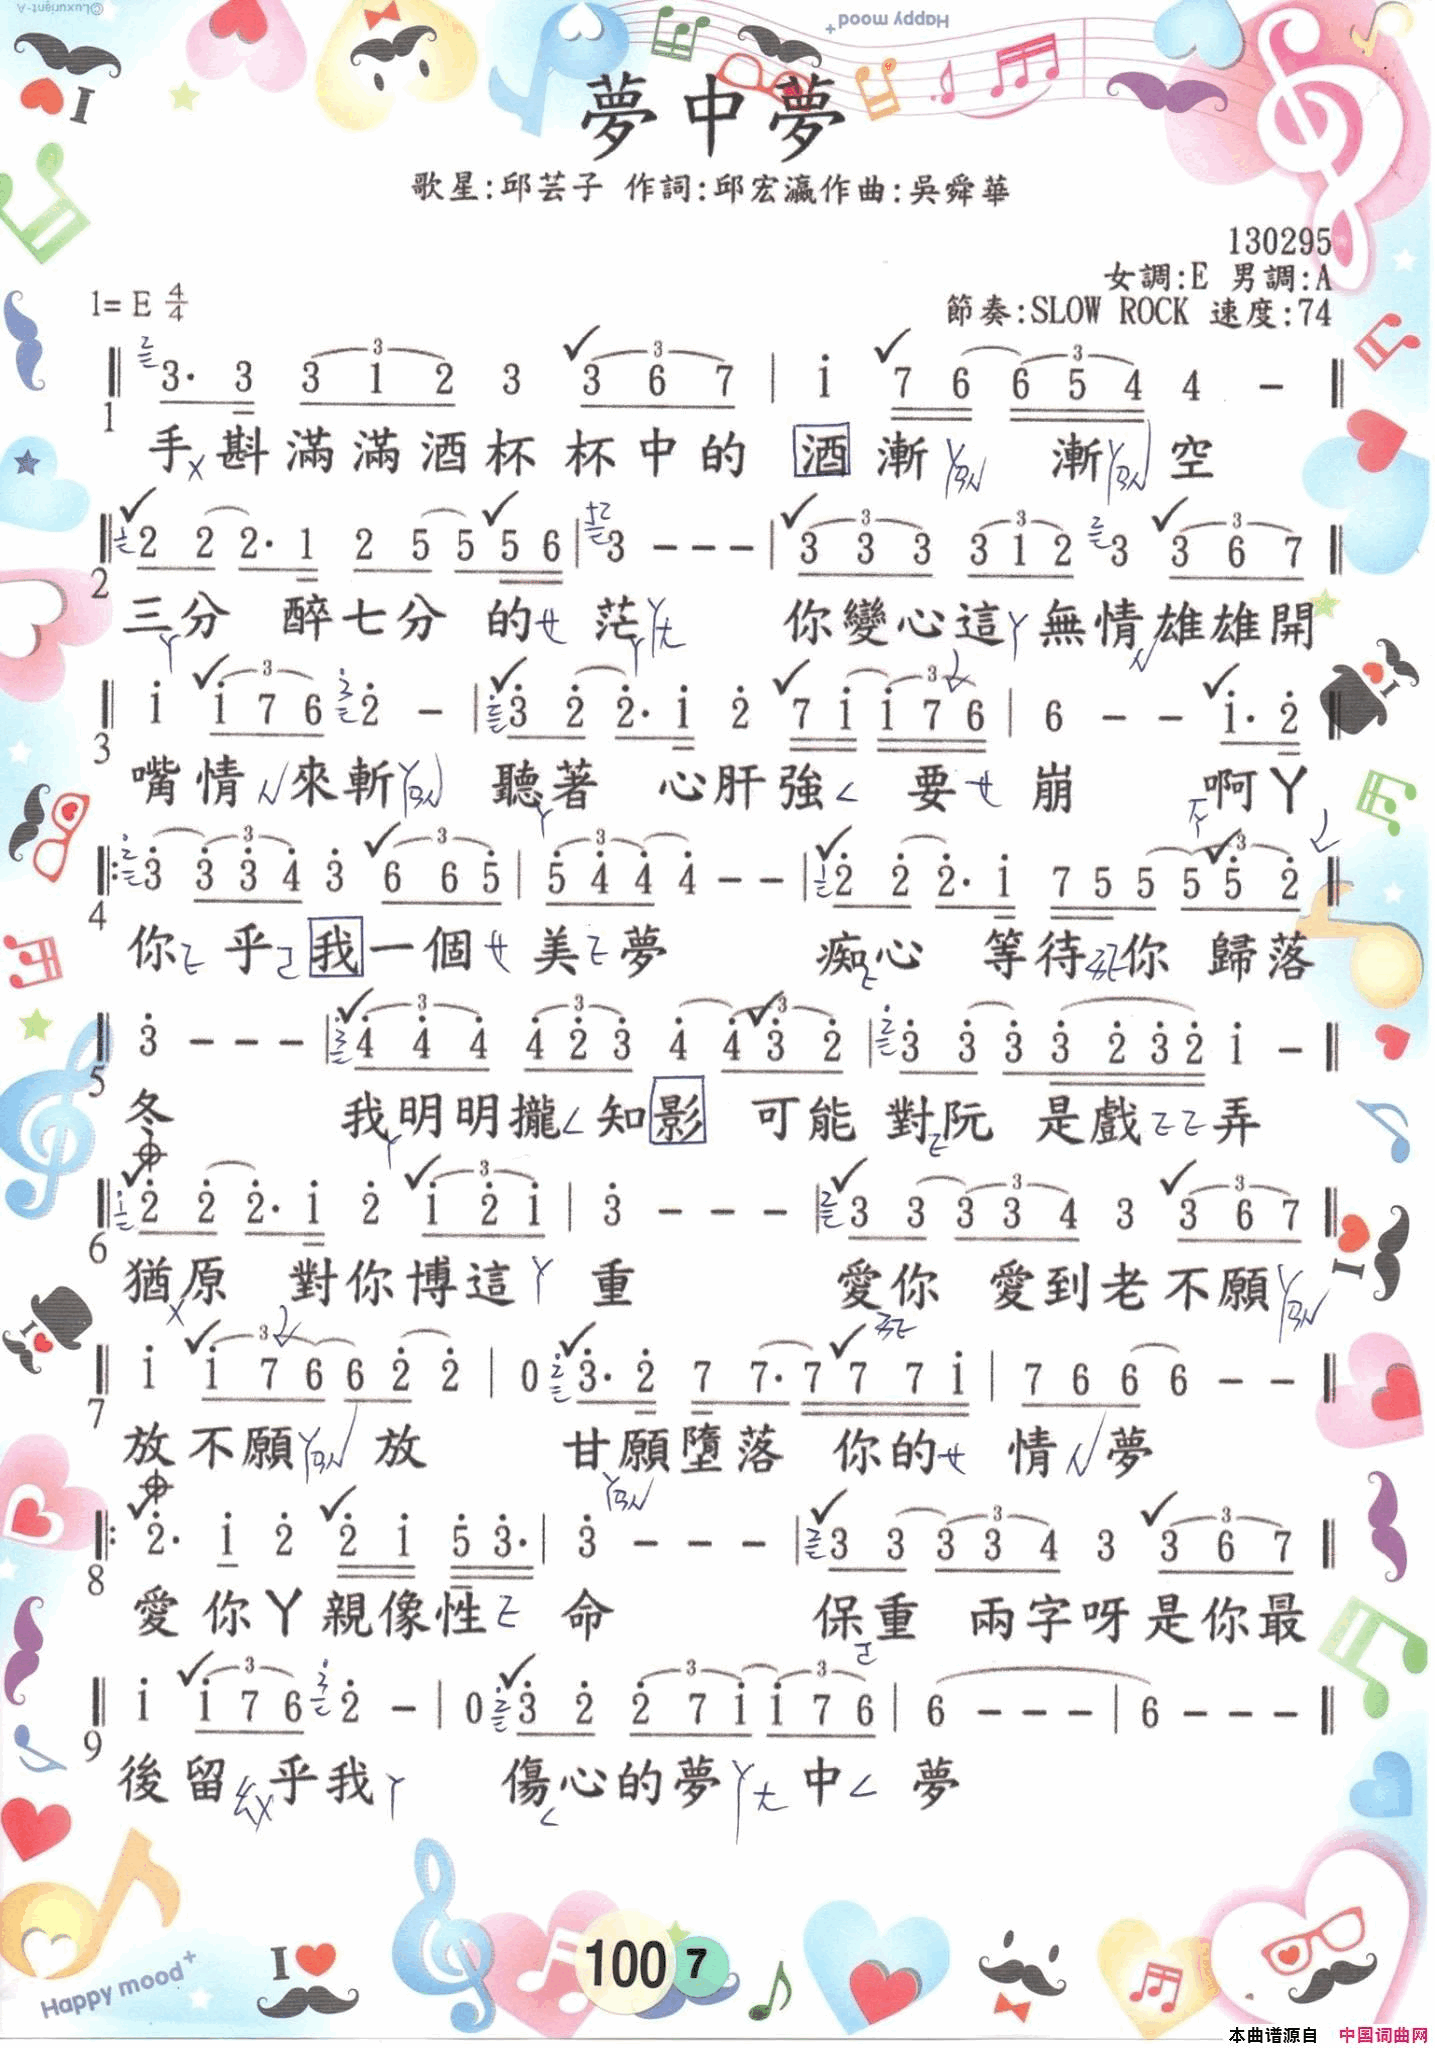 夢中夢
歌星:邱芸子 作詞:邱宏瀛作曲:吳舜華
130295
女調:E 男調:A
1= E 4/4
節奏:SLOW ROCK 速度:74
3· 3 3 1 2 3 3 6 7 | i 7 6 6 5 4 4 -
1
手斟滿滿酒杯杯中的 酒漸 漸 空
2 2 2· 1 2 5 5 5 6 | 3 - - - | 3 3 3 3 1 2 3 3 6 7
2
三分 醉七分 的 茫 你變心這 無情雄雄開
i i 7 6 2 - | 3 2 2· i 2 7 i i 7 6 | 6 - - i· 2
3
嘴情 來斬 聽著 心肝強 要 崩 啊ㄚ
3 3 3 4 3 6 6 5 | 5 4 4 4 - - | 2 2 2· i 7 5 5 5 5 2
4
你 乎 我一個 美 夢 痴心 等待 你 歸落
3 - - - | 4 4 4 4 2 3 4 4 3 2 | 3 3 3 3 2 3 2 i -
5
冬 我明明攏 知影 可能 對阮 是戲 弄
2 2 2· i 2 i 2 i | 3 - - - | 3 3 3 3 4 3 3 6 7
6
猶原 對你博這 重 愛你 愛到老不願
i i 7 6 6 2 2 | 0 3· 2 7 7· 7 7 7 i | 7 6 6 6 - -
7
放不願 放 甘願墮落 你的 情 夢
2· i 2 2 i 5 3· | 3 - - - | 3 3 3 3 4 3 3 6 7
8
愛你ㄚ親像性 命 保重 兩字呀是你最
i i 7 6 2 - | 0 3 2 2 7 i i 7 6 | 6 - - - | 6 - - -
9
後留 乎我 傷心的夢 中 夢
Happy mood+
I
100 7
本曲谱源自 中国词曲网